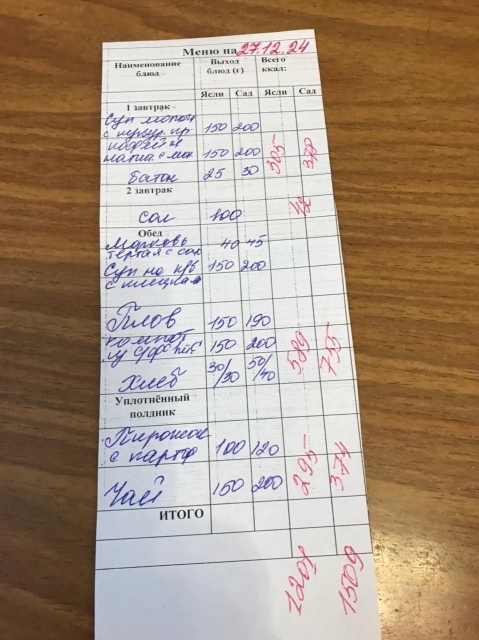 Меню на 27.12.24
Наименование блюд Выход блюд (г) Всего ккал:
Ясли Сад Ясли Сад
1 завтрак
Суп молоч
с кукур кр 150 200
кофейн
напит с мол 150 200 305 379
Батон 25 30
2 завтрак
Сок 100 42
Обед
Морковь 40 45
тертая с сах
Суп на к/б 150 200
с клецкам
Плов 150 190
компот
из с/ф 150 200 589 735
Хлеб 30/30 50/40
Уплотнённый
полдник
Пирожок
с картоф 100 120 295 374
Чай 150 200
ИТОГО